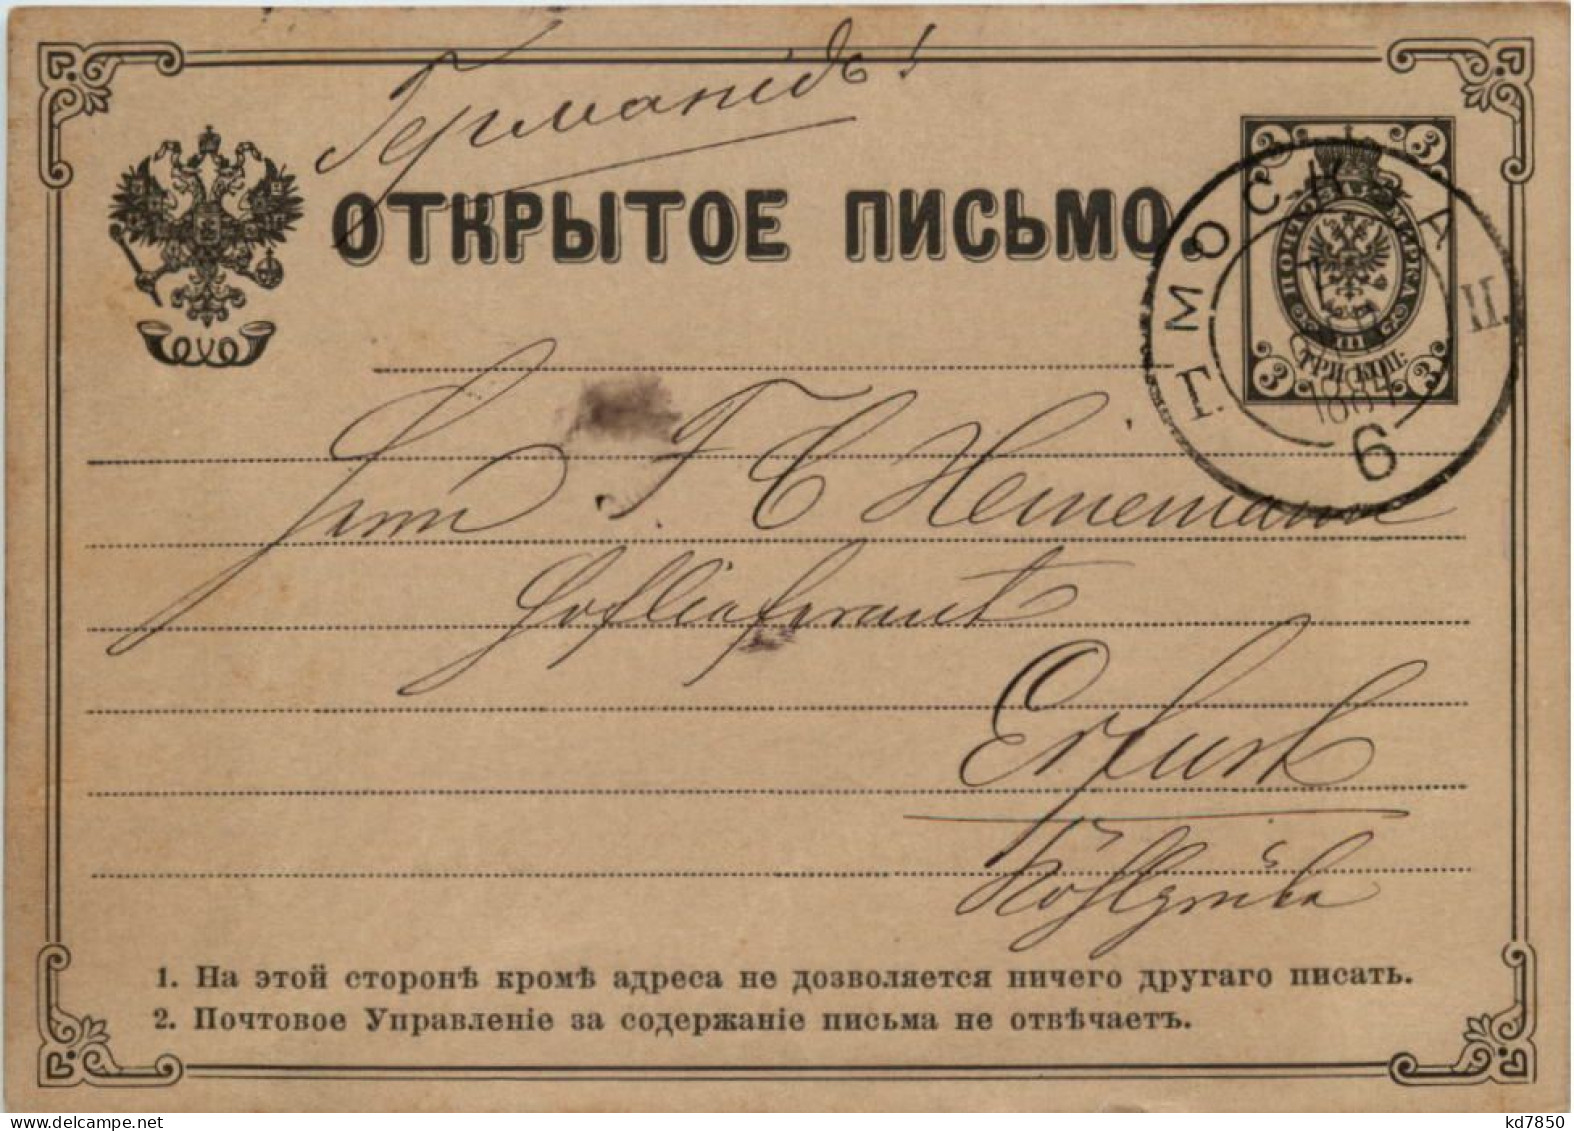 Германiдъ!
ОТКРЫТОЕ ПИСЬМО.
3 3
ПОЧТОВАЯ МАРКА
ТРИ КОП:
3 3
Г. МОСКВА П.
1884
6
F. C. Heinemann
Hoflieferant
Erfurt
1. На этой сторонѣ кромѣ адреса не дозволяется ничего другаго писать.
2. Почтовое Управленіе за содержаніе письма не отвѣчаетъ.
www.delcampe.net
kd7850